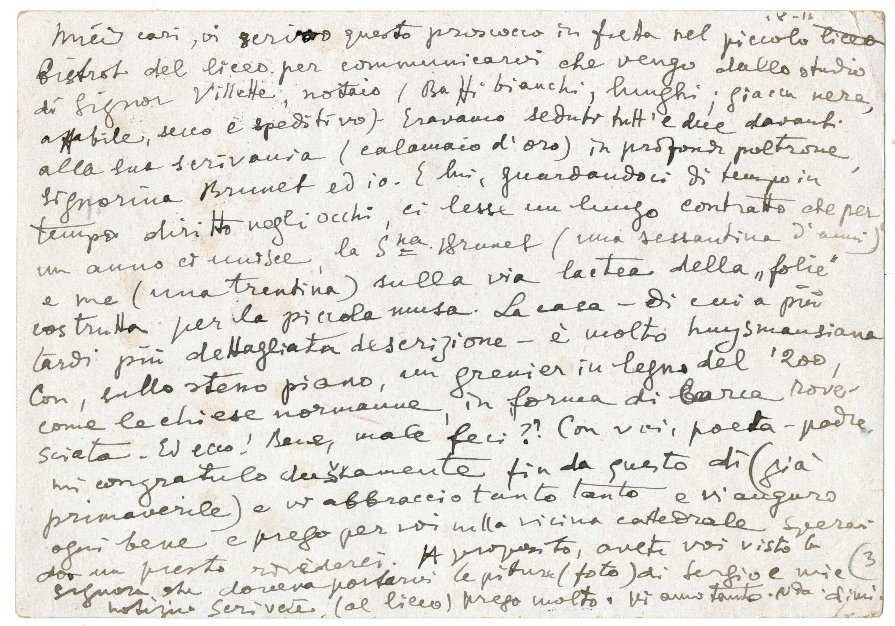 18-11
Miei cari, vi scrivo questo proscocco in fretta nel piccolo liceo
Bistrot del liceo per communicarvi che vengo dallo studio
di Signor Villette, notaio (Baffi bianchi, lunghi; giacca nera,
affabile, secco e speditivo) Eravamo seduti tutt'e due davanti
alla sua scrivania (calamaio d'oro) in profonde poltrone,
signorina Brunet ed io. E lui, guardandoci di tempo in
tempo diritto negli occhi, ci lesse un lungo contratto che per
un anno ci unisce, la Sna Brunet (una sessantina d'anni)
e me (una trentina) sulla via lactea della „folie"
costrutta per la piccola musa. La casa - di cui a più
tardi più dettagliata descrizione - è molto huysmansiana
Con, sullo stesso piano, un grenier in legno del '200,
come le chiese normanne, in forma di barca rove-
sciata. Ed ecco! Bene, male feci?? Con voi, poeta-padre
mi congratulo duškamente fin da questo dì (già
primaverile) e vi abbraccio tanto tanto e vi auguro
ogni bene e prego per voi nella vicina cattedrale Sperai
un presto rivederci. A proposito, avete voi visto la
signora che doveva portarvi le piture (foto) di Sergio e mie (3
notizie Scrivete (al liceo) prego molto. Vi amo tanto.